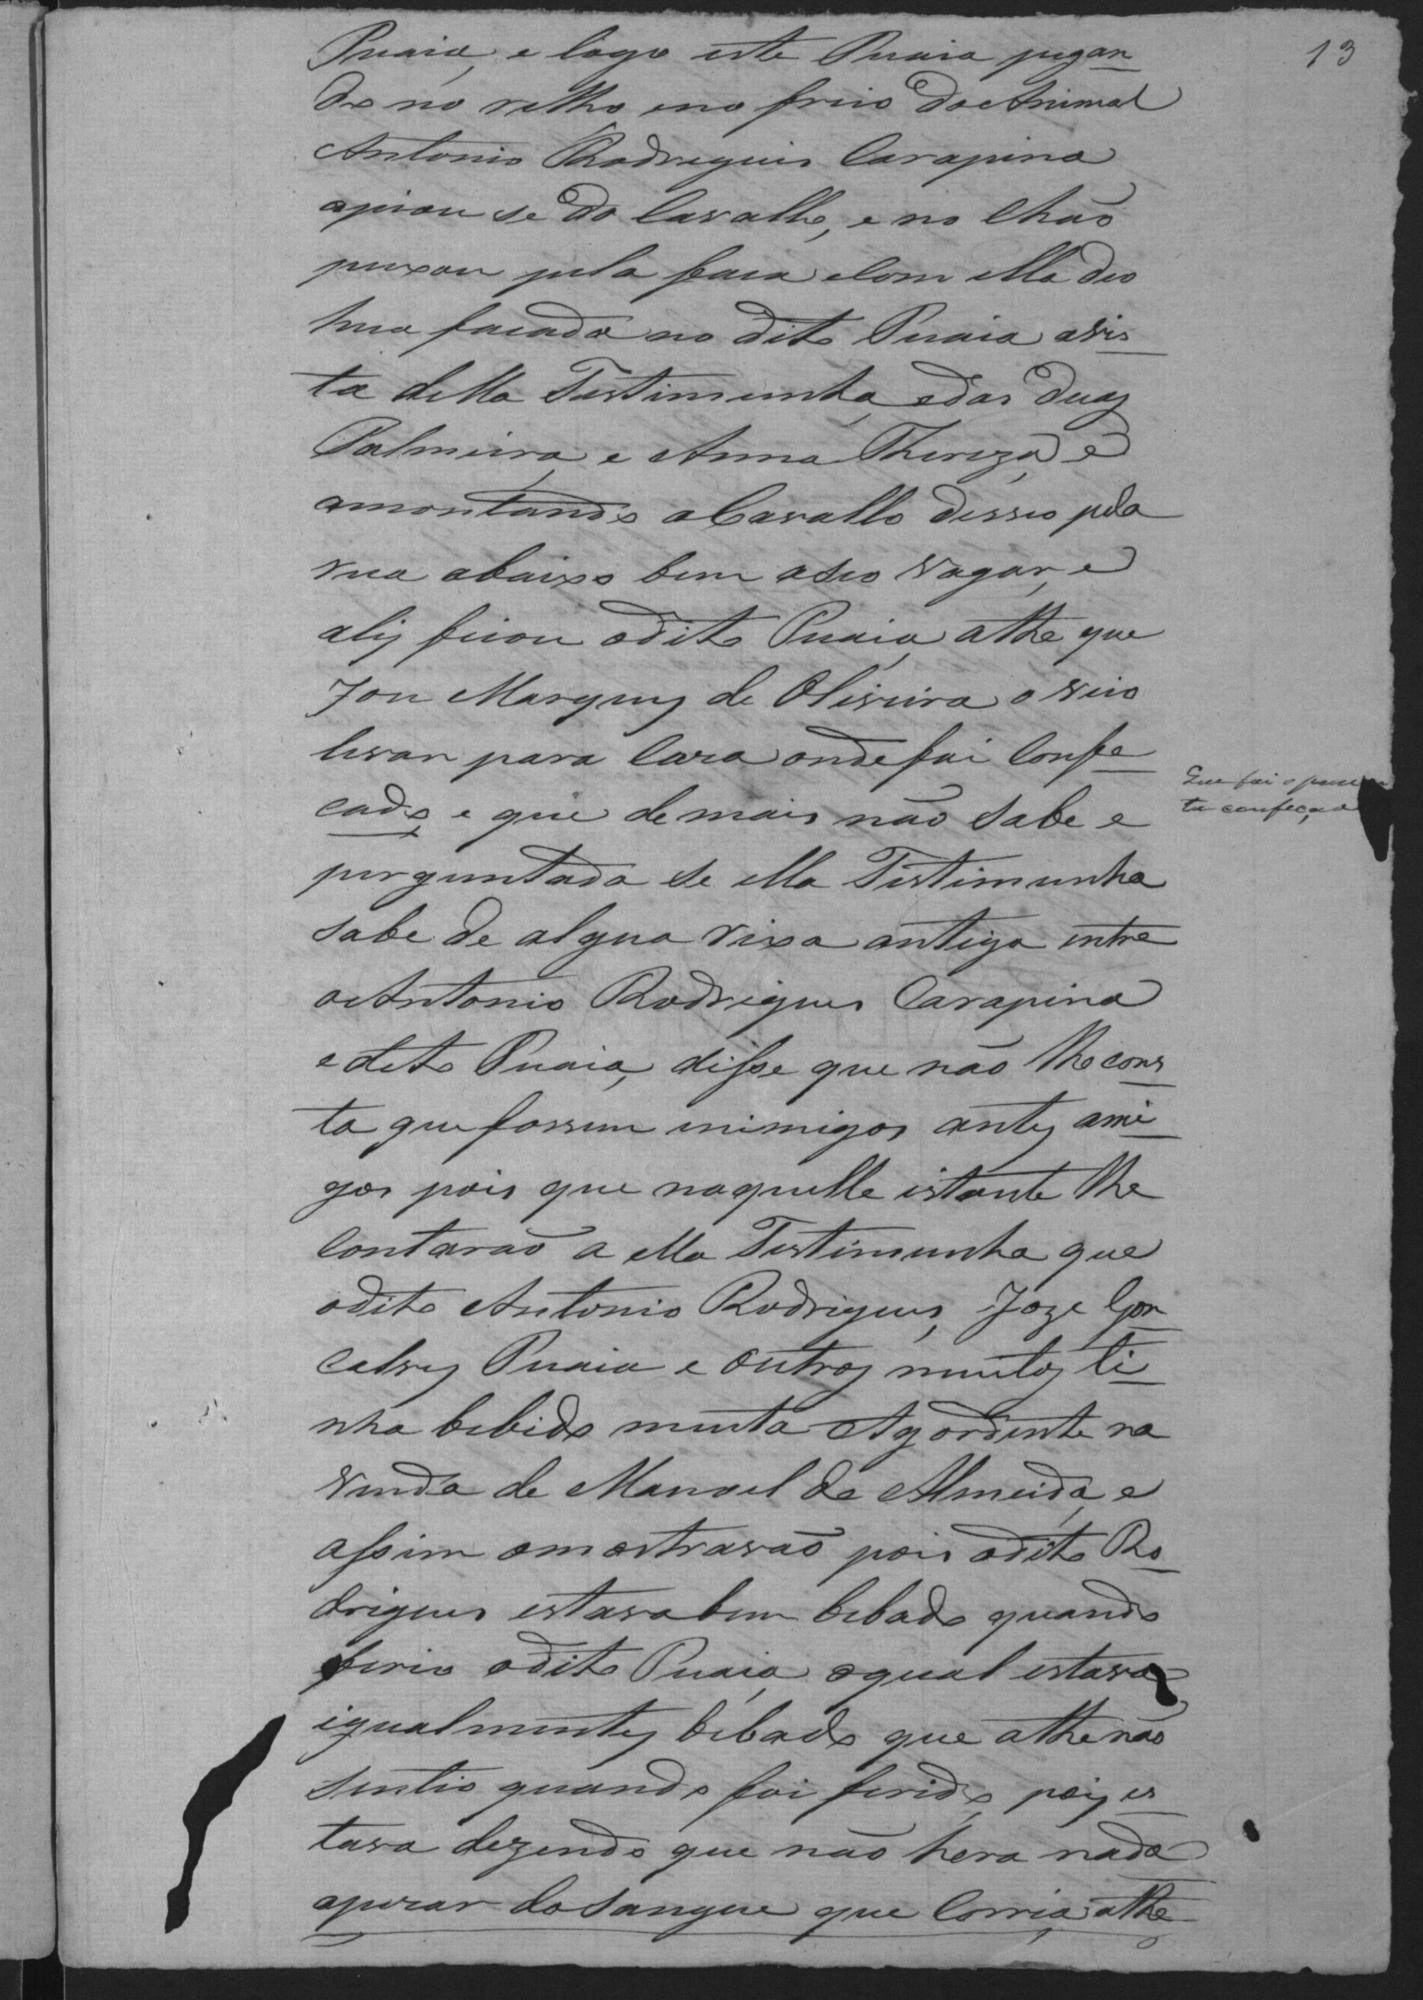 13
Puaia, e logo este Puaia pegan
do no relho eno freio do Animal
Antonio Rodrigues Carapina
apiou se do Cavallo, e no Chão
puxou pela faca e Com ella deo
hua facada no dito Puaia avis
ta della Testimunha, edas duas
Palmeira, e Anna Thereza, e
amontando aCavallo desseo pela
rua abaixo bem aseo vagar, e
alij ficou odito Puaia, athe que
Joze Marques de Oliveira o veio
levar para Caza onde foi Confe
çado, e que de mais não sabe e
perguntada se ella Testimunha
sabe de algua rixa antiga entre
oAntonio Rodrigues Carapina
e dito Puaia, disse que não lhe cons
ta que fossem inimigos antes ami
gos pois que naquelle istante lhe
Contarão a ella Testimunha que
odito Antonio Rodrigues, Joze Gon
calves Puaia e Outros muntos ti
nha bebido munta Agordente na
venda de Manoel de Almeida, e
assim amostravão pois odito Ro
drigues estava bem bebado quando
ferio odito Puaia, oqual estava
igualmentes bebado que athe não
sentio quando foi ferido, pois es
tava dezendo que não hera nada
apezar do sangue que Corria, athe
Que foi o
te confeçado